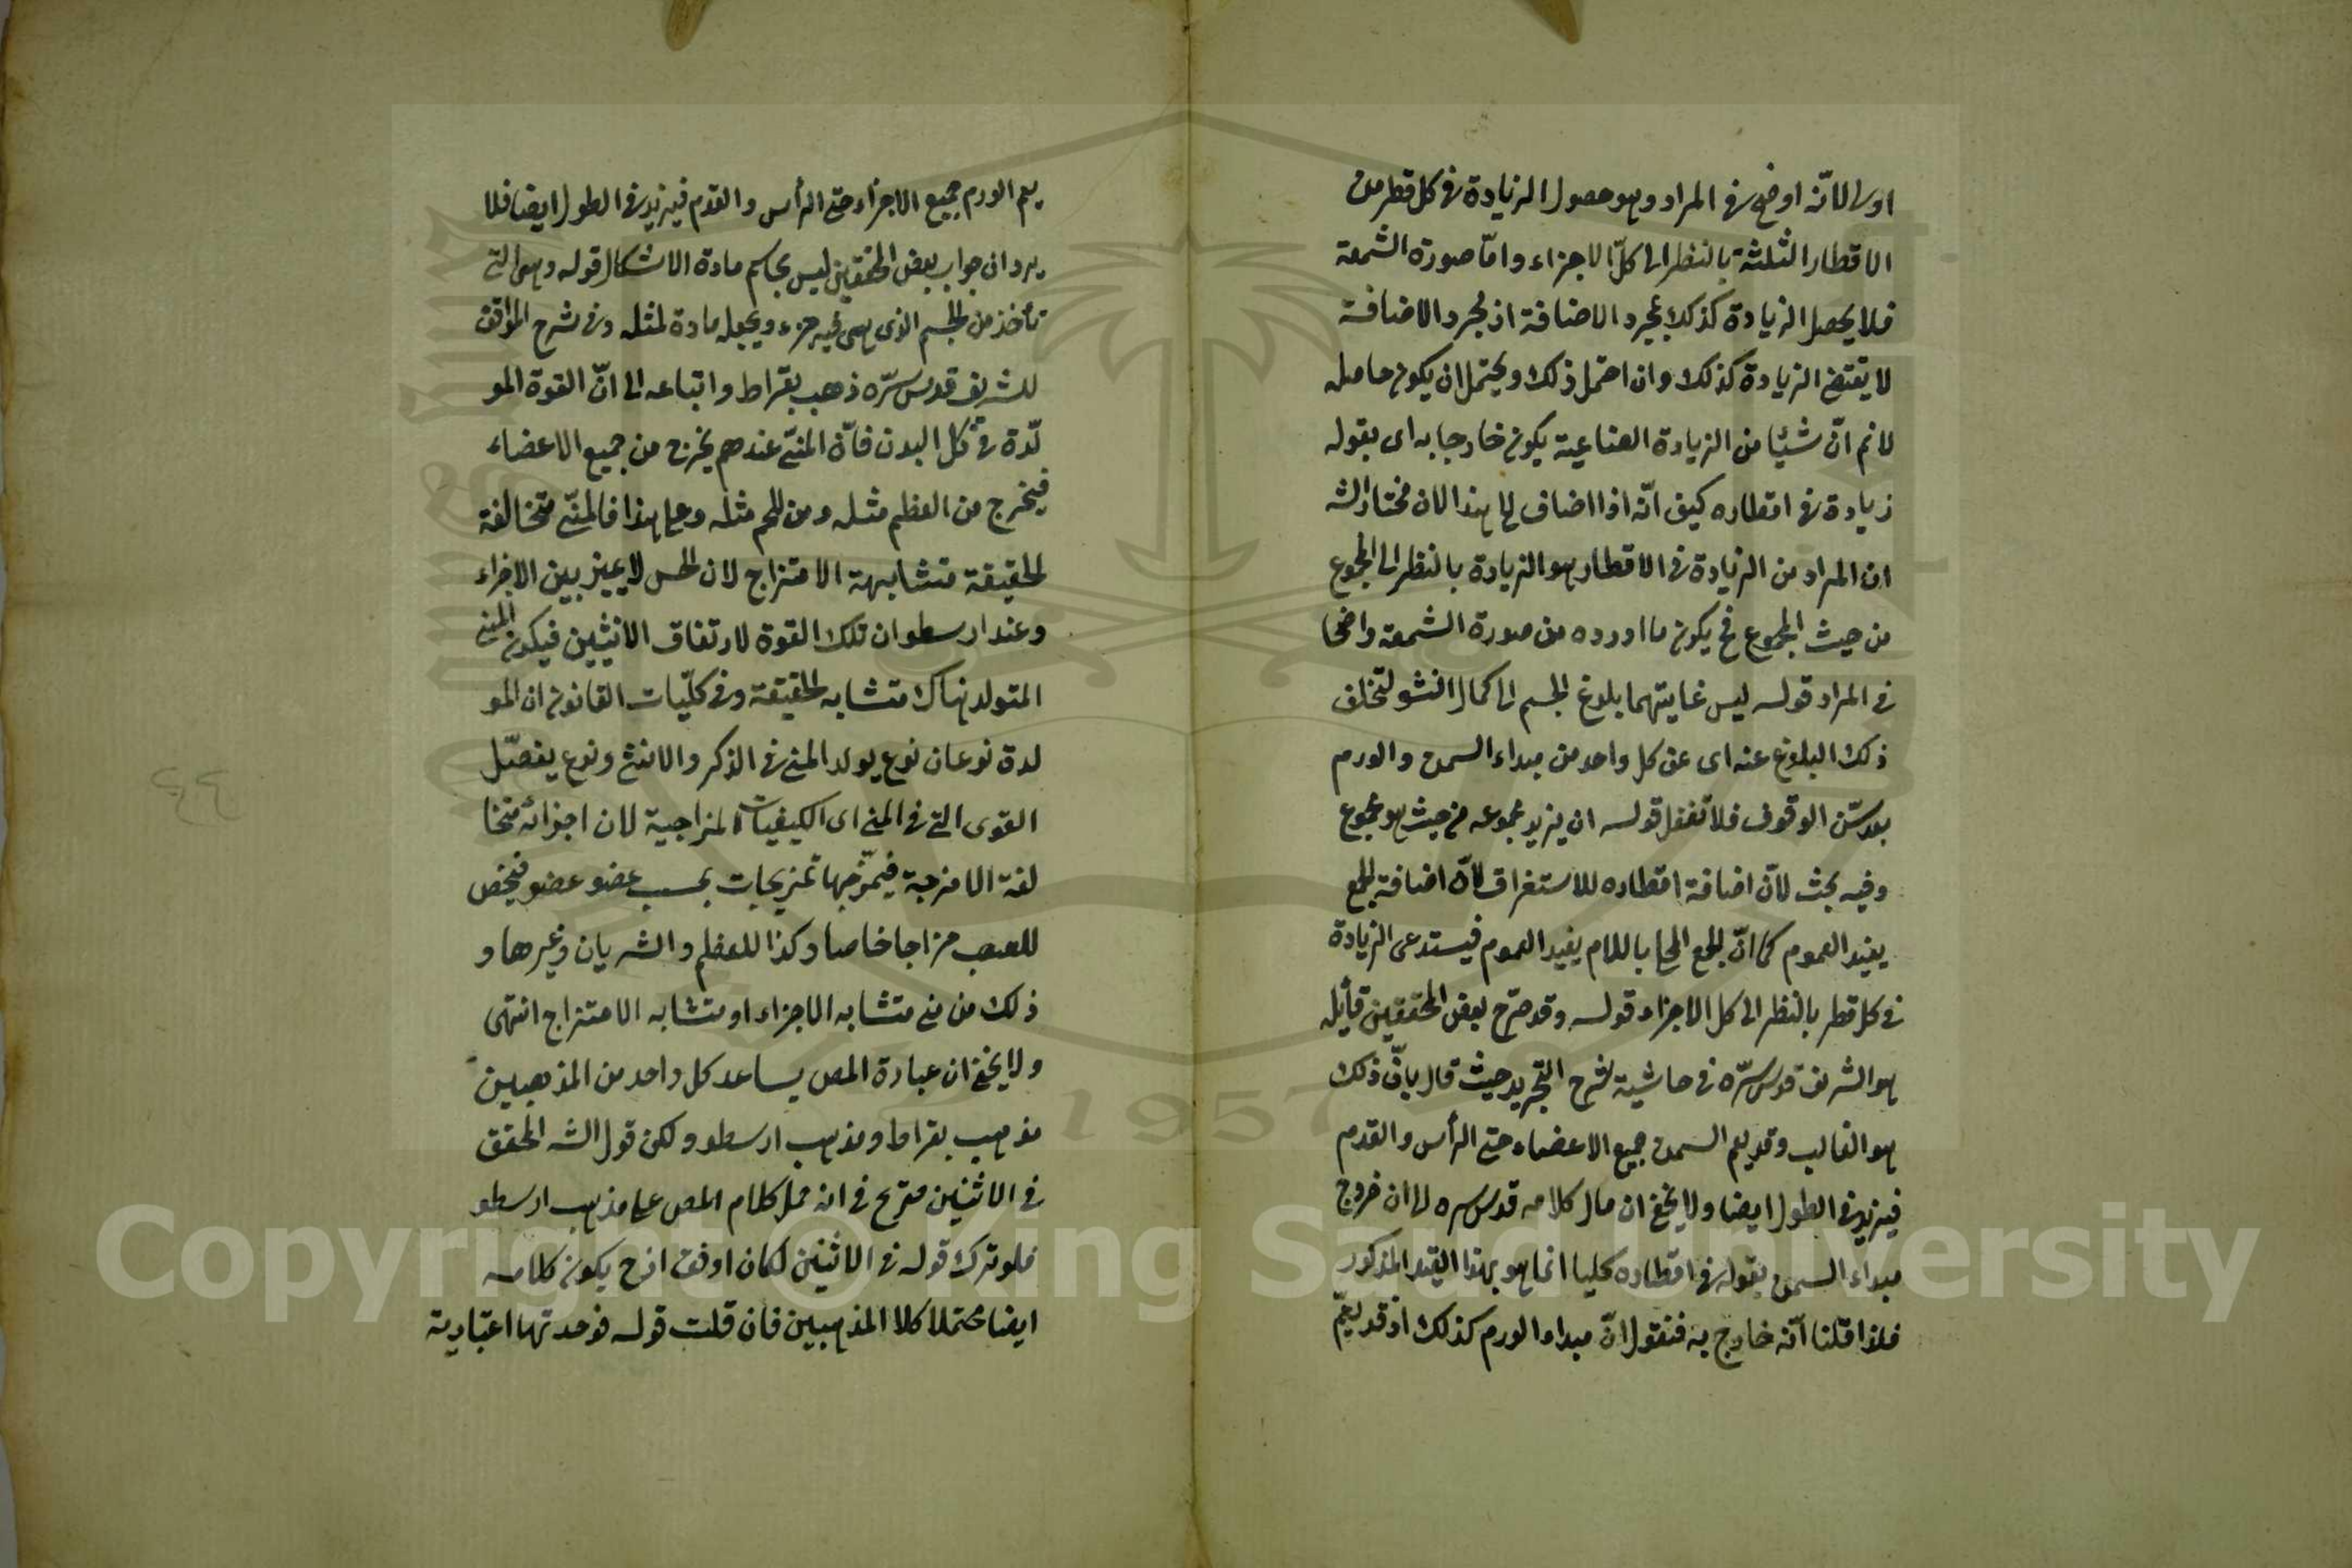 اولى لانّه اوضح فى المراد وهو حصول الزيادة فى كل قطر من
الاقطار الثلثة بالنظر الى كلّ الاجزاء وامّا صورة الشمعة
فلا يحصل الزيادة كذلك بمجرد الاضافة اذ مجرد الاضافة
لا يقتضى الزيادة كذلك وان احتمل ذلك ويحتمل ان يكون حاصله
لانم انّ شيئا من الزيادة الصناعية يكون خارجا به اى بقوله
زيادة فى اقطاره كيف انّه اذا اضاف الى هذا لان مختار الشه
ان المراد من الزيادة فى الاقطار هو الزيادة بالنظر الى المجموع
من حيث المجموع فح يكون ما اورده من صورة الشمعة واضحا
فى المراد قوله ليس غايتهما بلوغ الجسم الى كمال النشو لتخلف
ذلك البلوغ عنه اى عن كل واحد من مبداء السمن والورم
بعد سنّ الوقوف فلا تغفل قوله ان يزيد مجموعه من حيث هو مجموع
وفيه بحث لانّ اضافة اقطاره للاستغراق لانّ اضافة الجمع
يفيد العموم كما انّ الجمع المحلى باللام يفيد العموم فيستدعى الزيادة
فى كل قطر بالنظر الى كل الاجزاء قوله وقد صرّح بعض المحققين قائله
هو الشريف قدس سرّه فى حاشية لشرح التجريد حيث قال بانّ ذلك
هو الغالب وقد يعم السمن جميع الاعضاء حتى الرأس والقدم
فيزيد فى الطول ايضا ولا يخفى ان مال كلامه قدس سره الى ان خروج
مبداء السمن بقوله فى اقطاره كليا انما هو بهذا القيد المذكور
فلذا قلنا انّه خارج به فنقول انّ مبداء الورم كذلك اذ قد يعمّ
يعم الورم جميع الاجزاء حتى الرأس والقدم فيزيد فى الطول ايضا فلا
يرد ان جواب بعض المحققين ليس بحاسم مادة الاشكال قوله وهى التى
تأخذ من الجسم الذى هى فيه جزء ويجعله مادة لمثله وفى شرح المواقف
للشريف قدس سرّه ذهب بقراط واتباعه الى انّ القوة المو
لّدة فى كل البدن فانّ المنىّ عندهم يخرج من جميع الاعضاء
فيخرج من العظم مثله ومن اللحم مثله وعلى هذا فالمنىّ متخالفة
الحقيقة متشابهة الامتزاج لان الحس لا يميز بين الاجزاء
وعند ارسطو ان تلك القوة لا تفارق الانثيين فيكون المنى
المتولد هناك متشابه الحقيقة وفى كلّيات القانون ان المو
لدة نوعان نوع يولد المنى فى الذكر والانثى ونوع يفصّل
القوى التى فى المنى اى الكيفيات المزاجية لان اجزائه متخا
لفة الامزجة فيمزّجها تمزيجات بحسب عضو عضو فيخص
للعصب مزاجا خاصا وكذا للعظم والشريان وغيرها و
ذلك من منى متشابه الاجزاء او متشابه الامتزاج انتهى
ولا يخفى ان عبارة المص يساعد كل واحد من المذهبين
مذهب بقراط ومذهب ارسطو ولكن قول الشه المحقق
فى الانثيين صريح فى انه حمل كلام المص على مذهب ارسطو
فلو ترك قوله فى الانثيين لكان اوفق اذ ح يكون كلامه
ايضا محتملا كلا المذهبين فان قلت قوله فوحدتها اعتبارية
٤٤
1957
Copyright © King Saud University